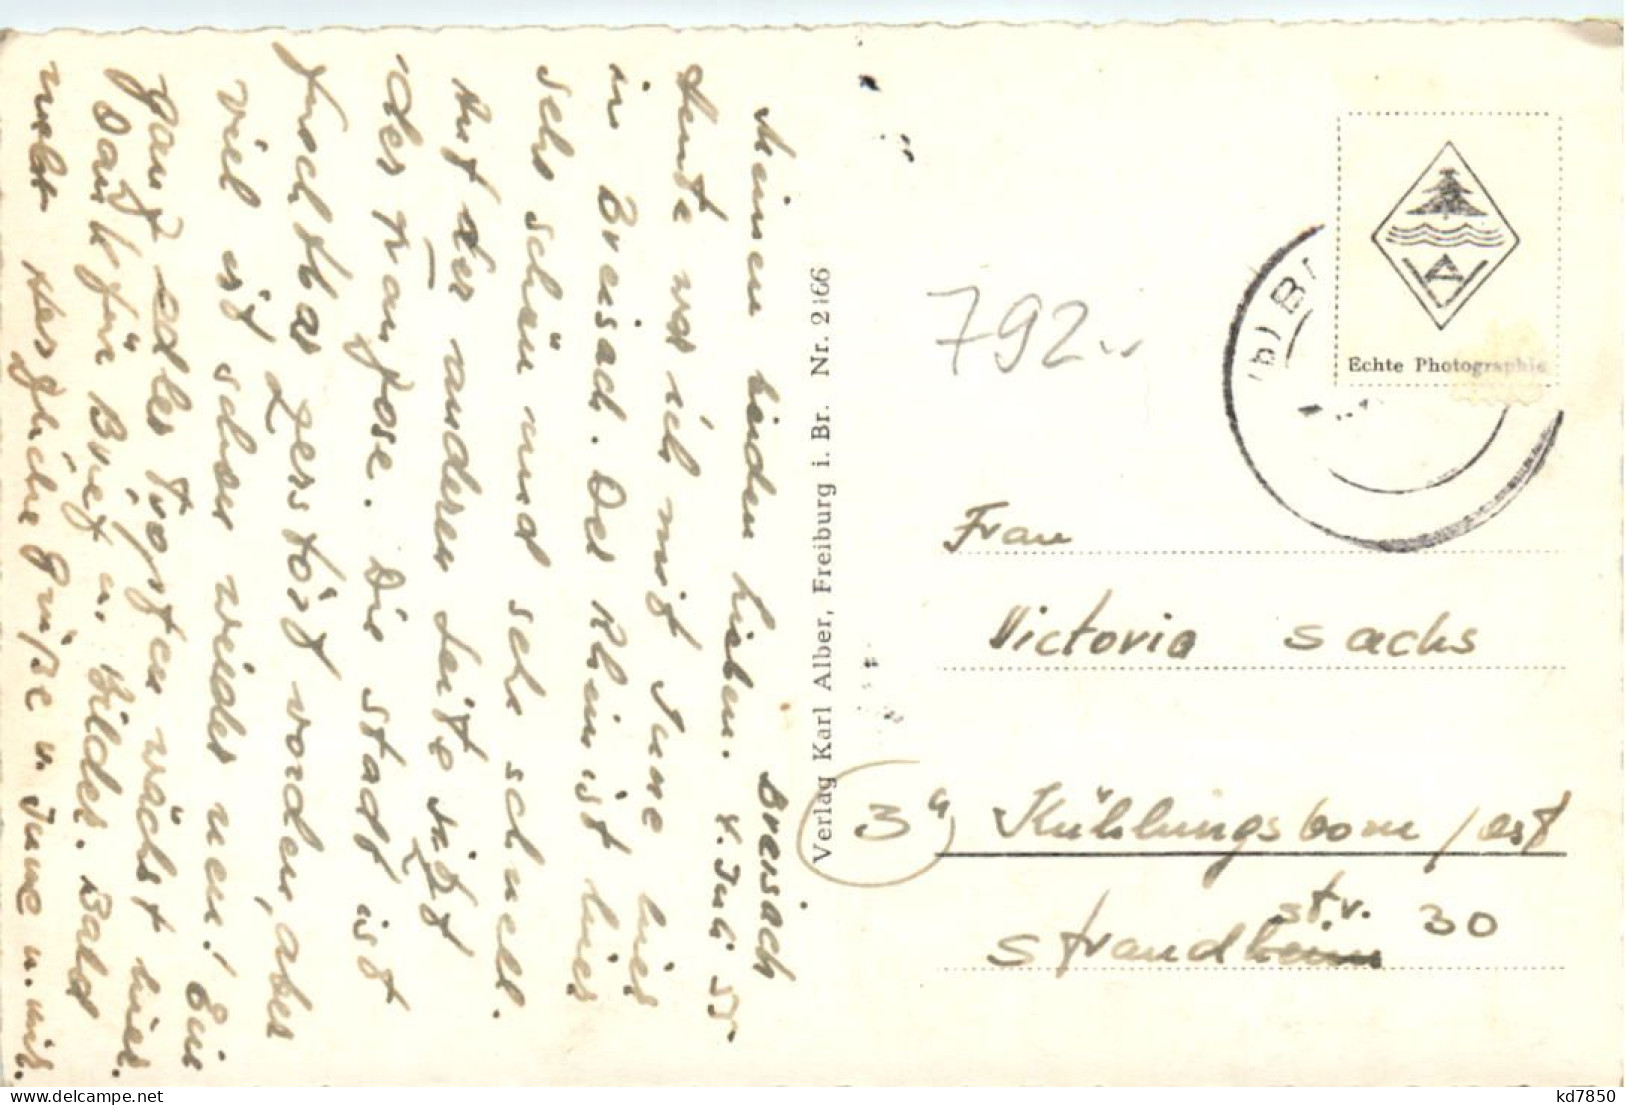 Breisach
Meinen beiden Lieben. 4. Juli 55
Heute war ich mit Inne hier
in Breisach. Der Rhein ist hier
sehr schön und sehr schnell.
Auf der anderen Seite sitzt
der Franzose. Die Stadt ist
furchtbar zerstört worden, aber
viel ist schon wieder neu! Ein
ganz edles Tröpfchen wächst hier.
Dank für Brief u. Bilder. Bald
mehr Herzliche Grüße v. Inne u. mir.
Verlag Karl Alber, Freiburg i. Br. Nr. 2166
792
(b) BR
Echte Photographie
Frau
Victoria Sachs
3a Kühlungsborn / Ost
Strand str. 30
kd7850